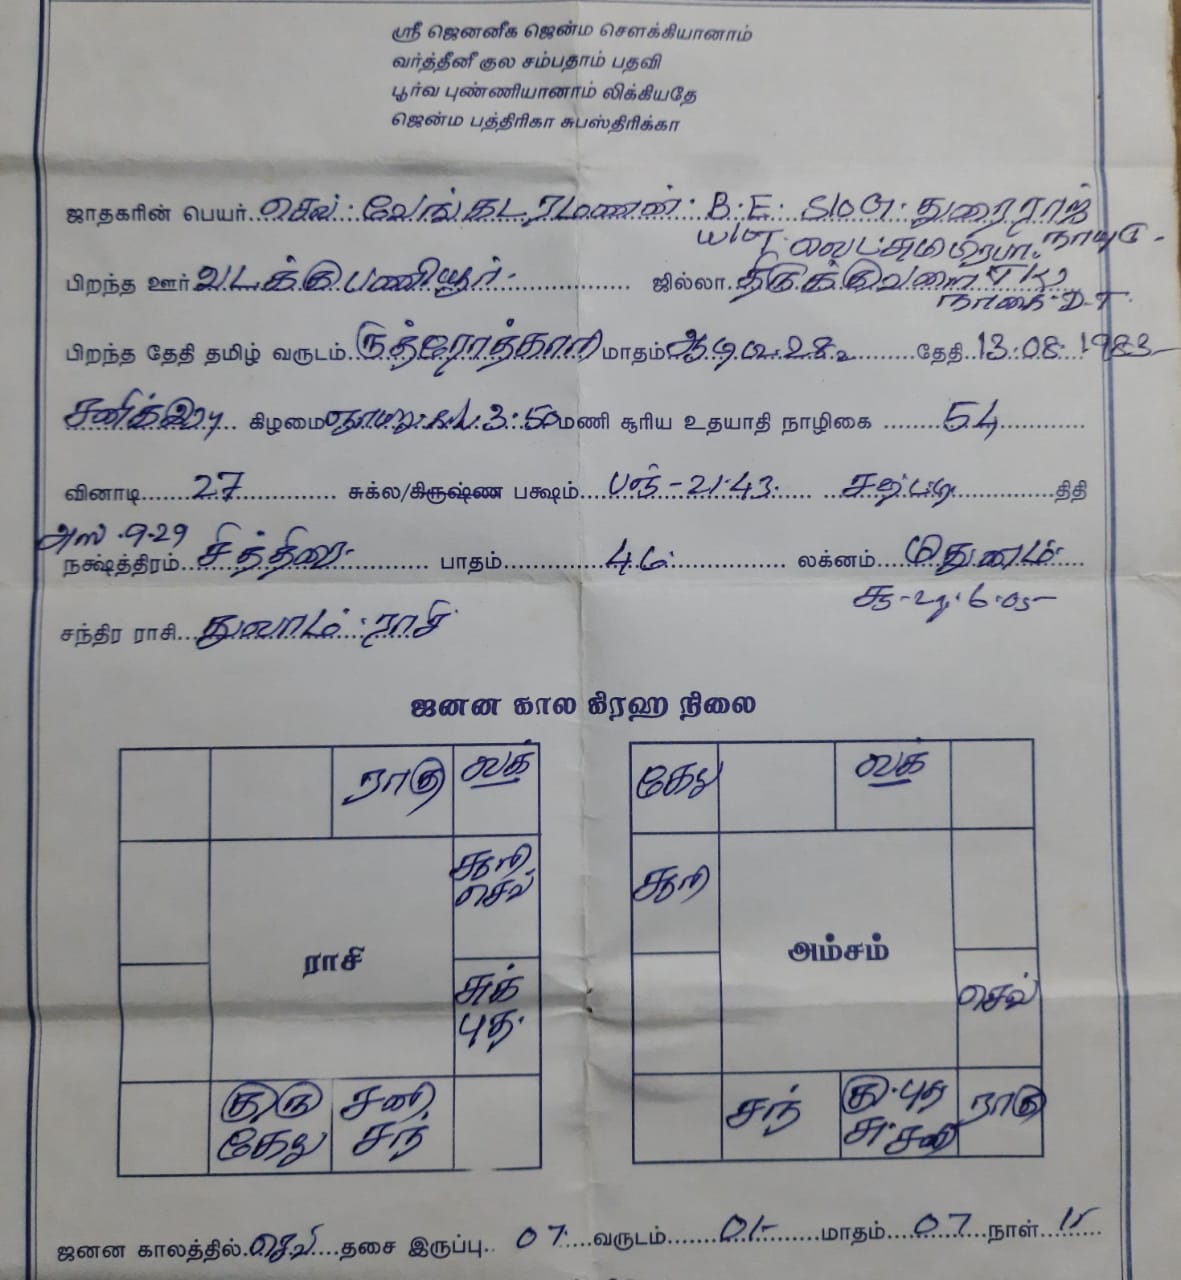 ஸ்ரீ ஜெனனீக ஜென்ம சௌக்கியானாம்
வர்த்தீனீ குல சம்பதாம் பதவி
பூர்வ புண்ணியானாம் லிக்கியதே
ஜென்ம பத்திரிகா சுபஸ்திரிக்கா
ஜாதகரின் பெயர். செல். வேங்கடரமணன். B.E. S/O G. துரைராஜ்
நாயுடு
பிறந்த ஊர் வடக்குபணியூர். ஜில்லா. திருக்குவளை TK
நாகை. D.T.
பிறந்த தேதி தமிழ் வருடம். ருத்ரோத்காரி மாதம் ஆடி 28 தேதி. 13.08.1983
சனிக்கிழ கிழமை 3:50 மணி சூரிய உதயாதி நாழிகை 54
வினாடி 27 சுக்ல/கிருஷ்ண பக்ஷம் பஞ் - 21.43. சஷ்டி திதி
அஸ். 9-29
நக்ஷத்திரம். சித்திரை. பாதம் 4ம் லக்னம் மிதுனம்
6.05
சந்திர ராசி. துலாம் ராசி
ஜனன கால கிரஹ நிலை
ராகு லக் கேது லக்
சூரி சூரி
செவ்
ராசி அம்சம்
சுக் செவ்
புத.
குரு சனி சந் கு.புத ராகு
கேது சந் சு.சனி
ஜனன காலத்தில். செவ் தசை இருப்பு. 07 வருடம் 01 மாதம் 07 நாள் 15